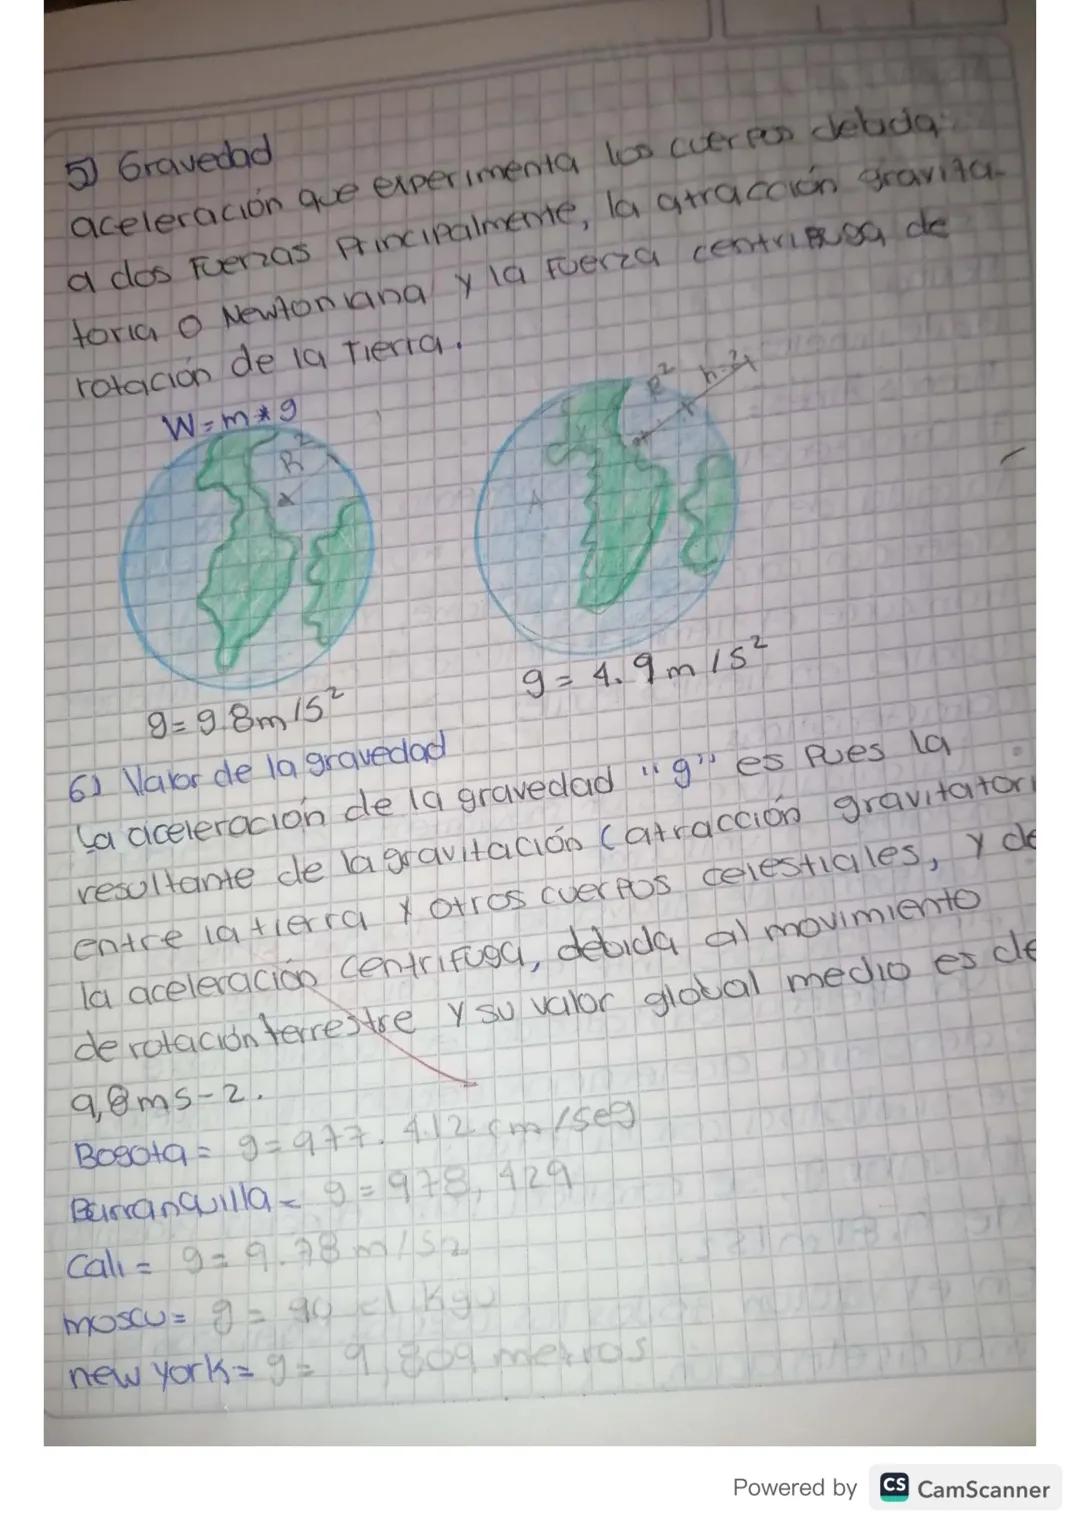 5) Gravedad
aceleración que experimenta los cuerpos debida
a dos Fuerzas Principalmente, la atracción gravita-
toria o Newtoniana y la Fuerza centrifuga de
rotación de la Tierra.
W=m*g
R²
R²
g=9.8m/s²
g=4.9m/s²
6) Valor de la gravedad
La aceleración de la gravedad "g" es Pues la
resultante de la gravitación (atracción gravitatori
entre la tierra y otros cuerpos celestiales, y de
la aceleración centrifuga, debida al movimiento
de rotación terrestre y su valor global medio es de
9,8ms-2.
Bogota= g=977.412 cm/seg
Barranquilla= g=978,429
Cali= g=9.78m/s2
moscu= g=
new york= g= 9,809 metros
Powered by CS CamScanner